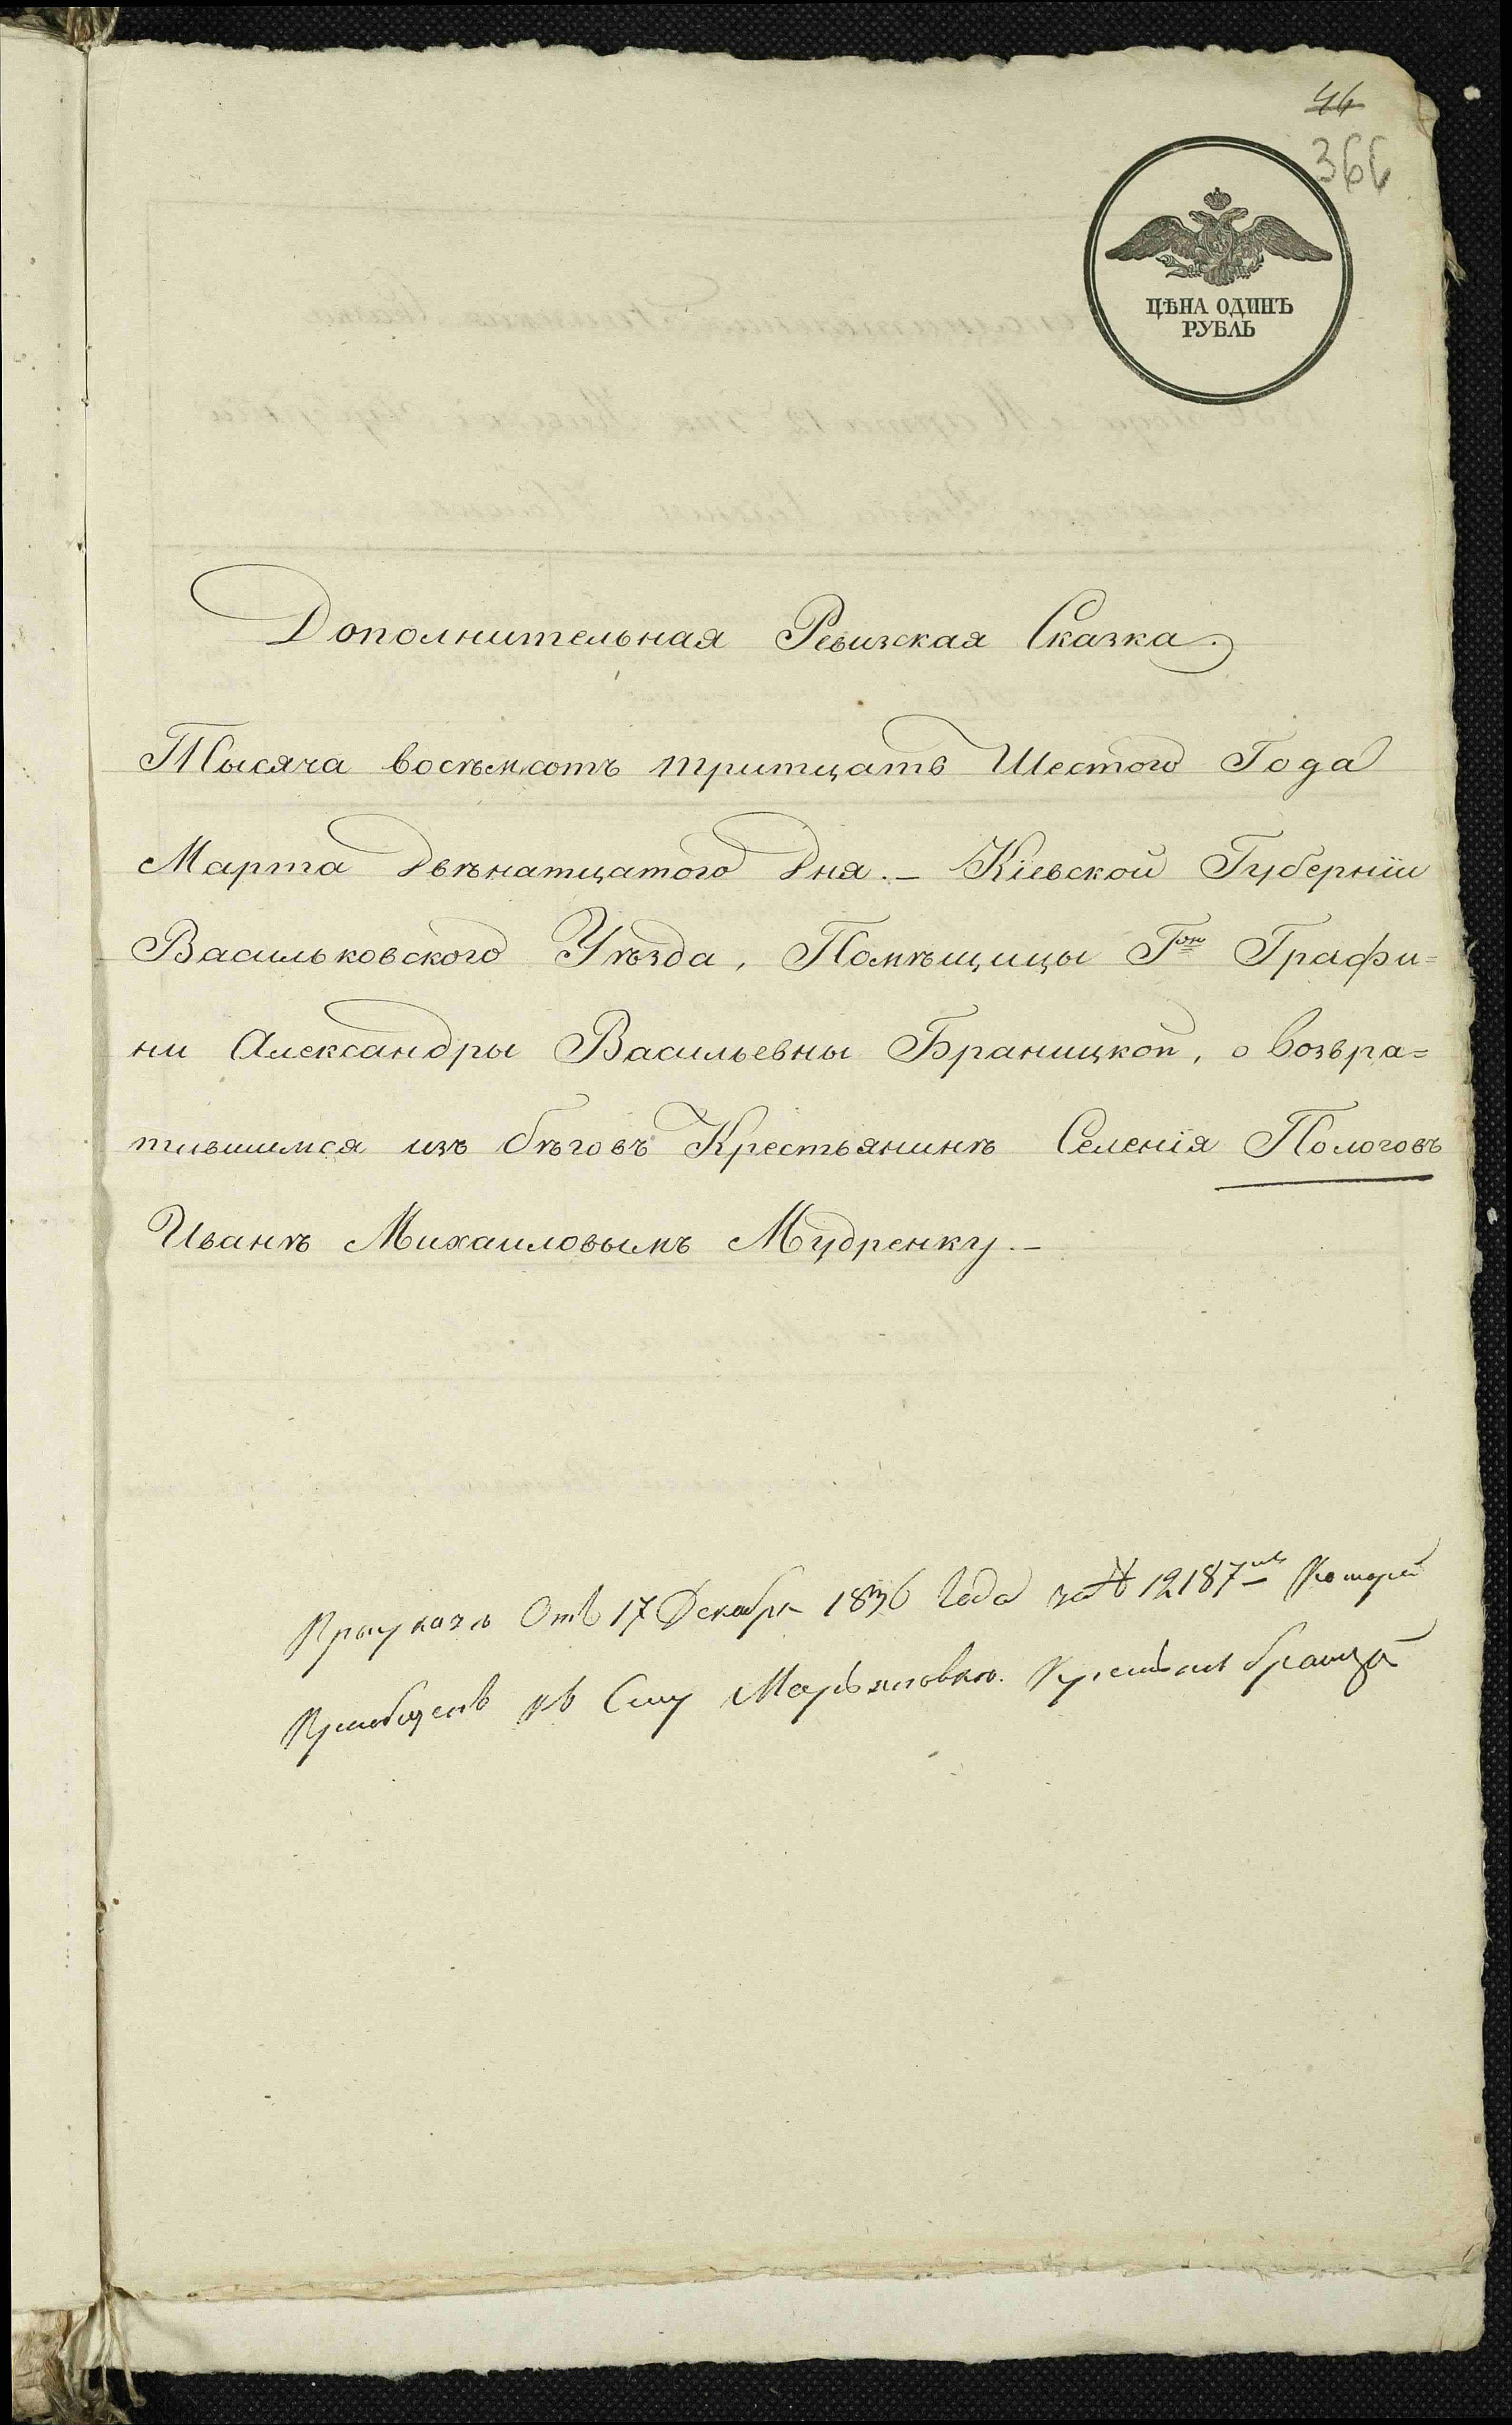 46
366
ЦѢНА ОДИНЪ
РУБЛЬ
Дополнительная Ревизская Сказка.
Тысяча восѣмсотъ тритцать Шестого Года
Марта двѣнатцатого дня. — Кіевской Губерніи
Васильковского Уѣзда, Помѣщицы Гжи Графи=
ни Александры Васильевны Браницкой, о возвра=
тившимся изъ бѣговъ Крестьянинѣ Селенія Пологовъ
Иванѣ Михаиловымъ Мудренку. —
Отъ 17 Декабря 1836 Года за № 12187
къ Марьяновкѣ.